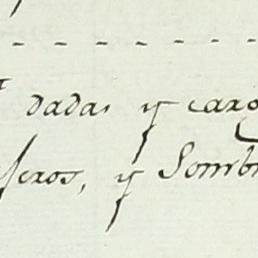 dadas y caro
seros, y Somb